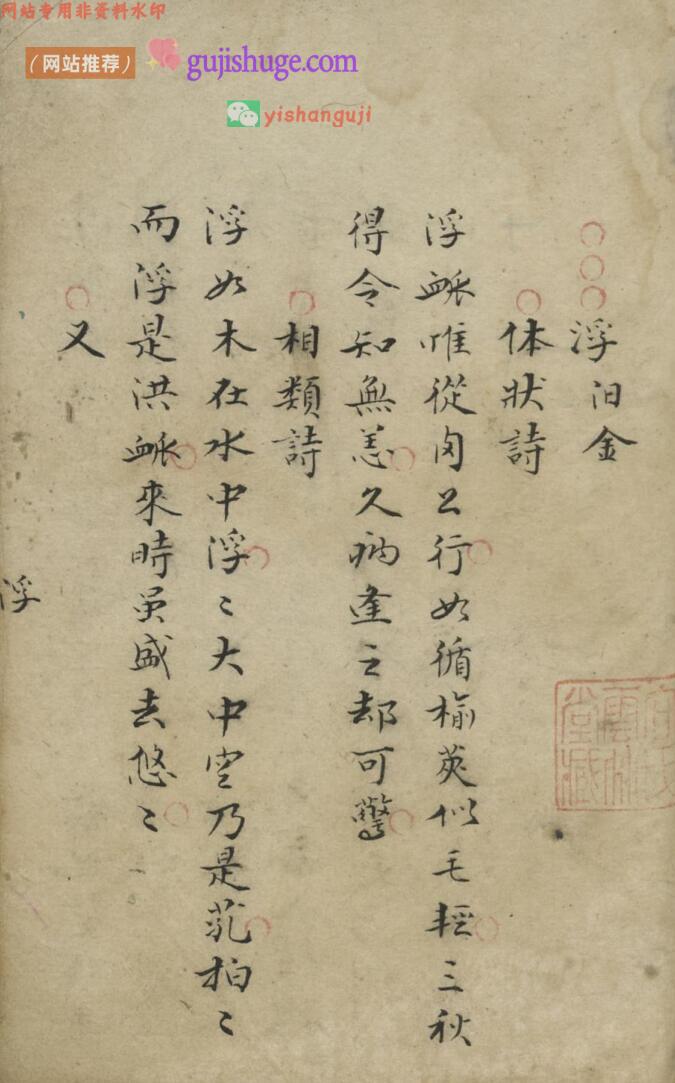 网站专用非资料水印
(网站推荐) gujishuge.com
yishanguji
浮阳金
体狀詩
浮衇唯從肉上行如循榆莢似毛輕三秋
得令知無恙久病逢之却可驚
相類詩
浮如木在水中浮〻大中空乃是芤拍〻
而浮是洪衇來時虽盛去悠〻
又
浮